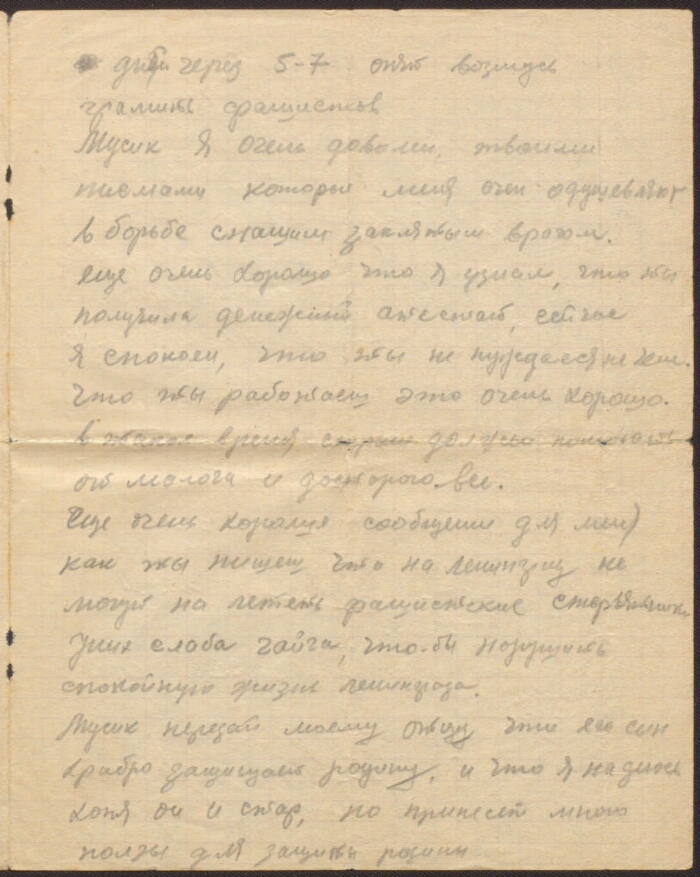 дней через 5-7 опят возмусь
грамить фашистов
Мусик Я очень доволен, твоими
писмами которые меня очен одушевляют
в борьбе снашим заклятым врагом.
еще очень хорошо что я узнал, что ты
получила денежный атестат, сейчас
Я спокоен, что ты не нуждаеся не чем.
Что ты работаеш это очень хорошо.
в такое время стране должны помогать
от малога и достарого. все.
Еще очень хорошия сообщения для меня
как ты пишеш что на ленинград не
могут на лететь фашистские стервятники
Уних слаба гайга, что-бы нарушить
спокойную жизнь ленинграда.
Мусик передай моему отцу что его сын
храбро защищает родину, и что я надеюсь
хотя он и стар, но принесет много
ползы для защиты родины